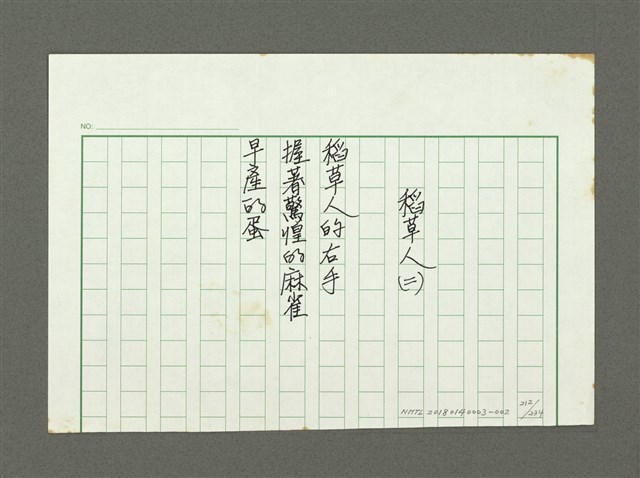 NO:
稻草人(二)
稻草人的右手
握著驚惶的麻雀
早產的蛋
NMTL 20180140003-002
212/234